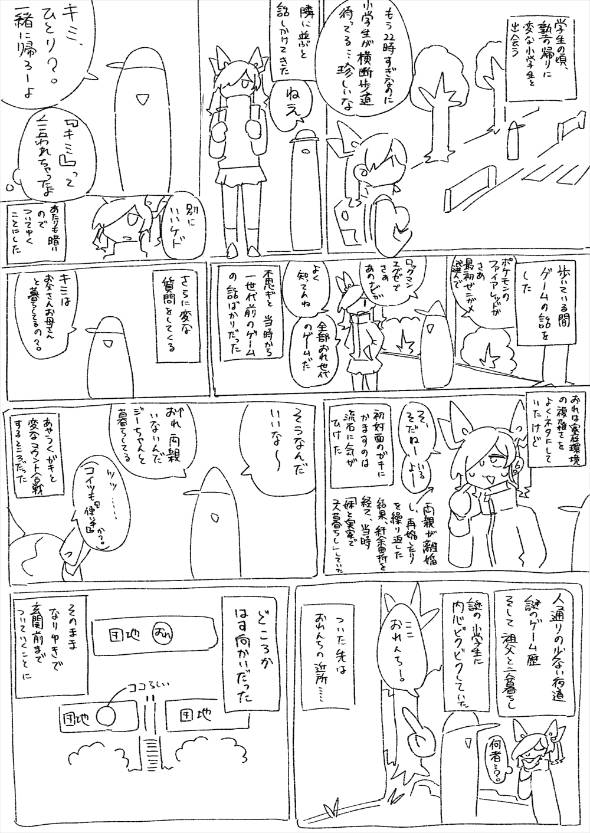 学生の頃、
塾の帰りに
変な小学生と
出会う
もう22時すぎなのに
小学生が横断歩道
待ってる…珍しいな
隣に並ぶと
話しかけてきた
ねえ
キミ、
ひとり？。
一緒に帰ろーよ
『キミ』って
言われちゃったよ
別に
いいケド
あたりも暗い
ので
ついてゆく
ことにした
歩いている間
ゲームの話を
した
ポケモンの
ファイアレッドが
さぁ
最初ゼニガメ
選んで
ロックマン
エグゼで
さぁ
あのナビが
よく
知ってんね
全部おれ世代
のゲームだ
不思議と当時から
一世代前のゲーム
の話ばかりだった
さらに変な
質問をしてくる
キミは
お父さんお母さん
と暮らしてるの？。
おれは家庭環境
の複雑さを
よくネタにして
いたけど
そ、
そだねーいる
よー
両親が離婚
し、再婚したり
を繰り返した
結果、紆余曲折を
経て、当時
妹と実家で
2人暮らししていた
初対面のガキに
かますのは
流石に気が
ひけた
そうなんだ
いいな〜
おれ両親
いないんだ
ジーちゃんと
暮らしてる
ッッ……
コイツも『使い手』か？。
あやうくガキと
変なマウント合戦
するところだった
人通りの少ない夜道
謎のゲーム歴
そして祖父と二人暮らし
謎の小学生に
内心ビクビクしていた
何者…？。
ここ
おれんちー。
ついた先は
おれんちの近所……
どころか
はす向かいだった
団地 おれ
ココらしい
団地
団地
そのまま
なりゆきで
玄関前まで
ついていくことに